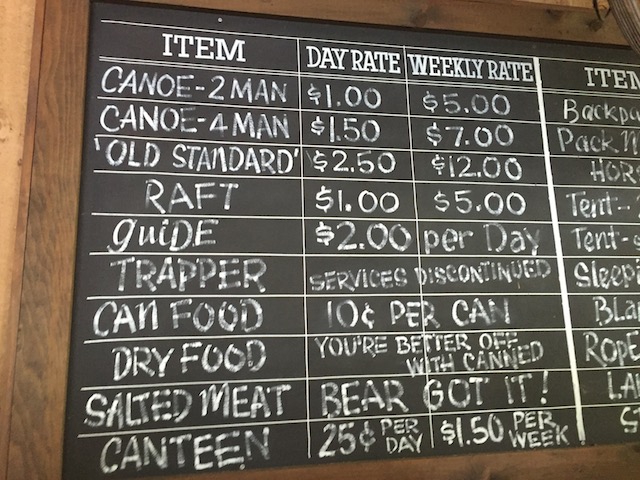 ITEM DAY RATE WEEKLY RATE ITEM
CANOE-2 MAN $1.00 $5.00
CANOE-4 MAN $1.50 $7.00 Pack
'OLD STANDARD' $2.50 $12.00
RAFT $1.00 $5.00 Tent--
guiDE $2.00 per Day Tent-
TRAPPER SERVICES DISCONTINUED
CAN FOOD 10¢ PER CAN
DRY FOOD YOU'RE BETTER OFF WITH CANNED ROPE
SALTED MEAT BEAR GOT IT!
CANTEEN 25¢ PER DAY $1.50 PER WEEK